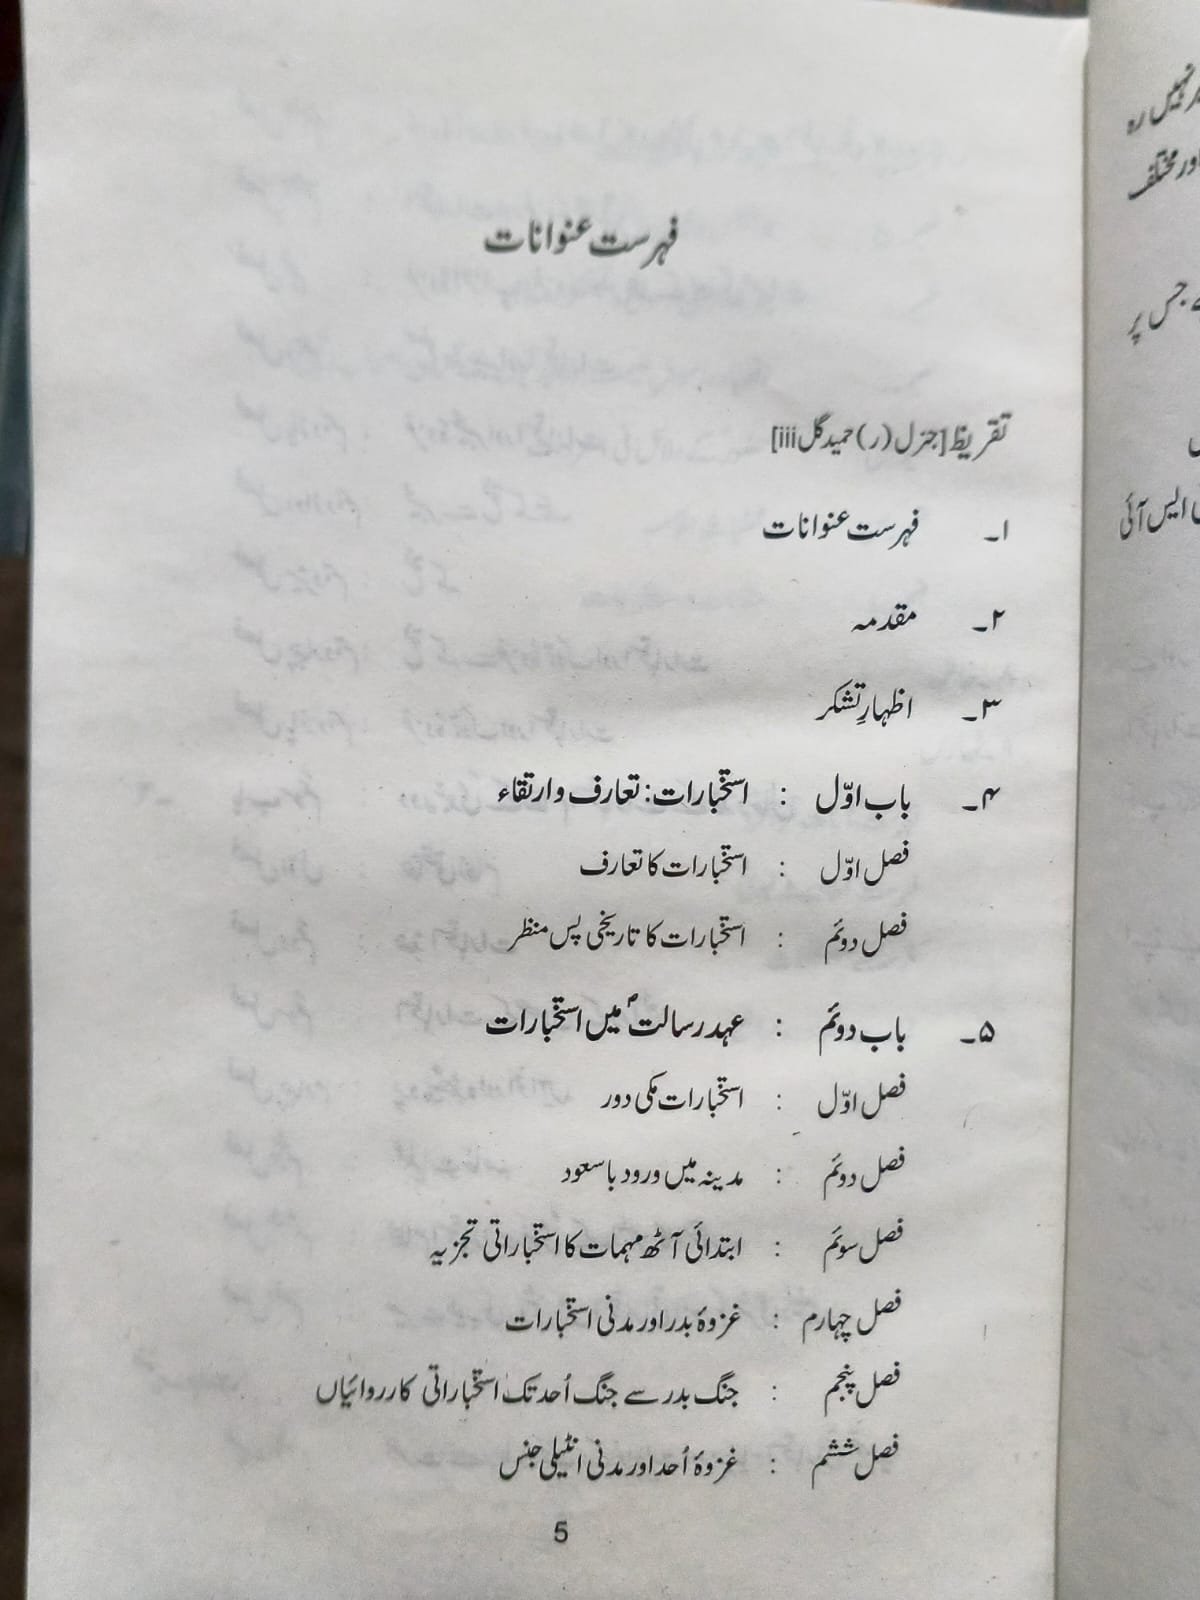 فہرست عنوانات
تقریظ [جنرل (ر) حمید گل iii]
۱۔ فہرست عنوانات
۲۔ مقدمہ
۳۔ اظہارِ تشکر
۴۔ باب اوّل : استخبارات: تعارف و ارتقاء
فصل اوّل : استخبارات کا تعارف
فصل دوئم : استخبارات کا تاریخی پس منظر
۵۔ باب دوئم : عہد رسالت ؐ میں استخبارات
فصل اوّل : استخبارات مکی دور
فصل دوئم : مدینہ میں ورود باسعود
فصل سوئم : ابتدائی آٹھ مہمات کا استخباراتی تجزیہ
فصل چہارم : غزوۂ بدر اور مدنی استخبارات
فصل پنجم : جنگ بدر سے جنگ اُحد تک استخباراتی کارروائیاں
فصل ششم : غزوۂ اُحد اور مدنی انٹیلی جنس
5
نہیں رہ
اور مختلف
جس پر
ایس آئی